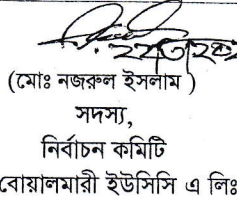 (মোঃ নজরুল ইসলাম )
সদস্য,
নির্বাচন কমিটি
বোয়ালমারী ইউসিসি এ লিঃ